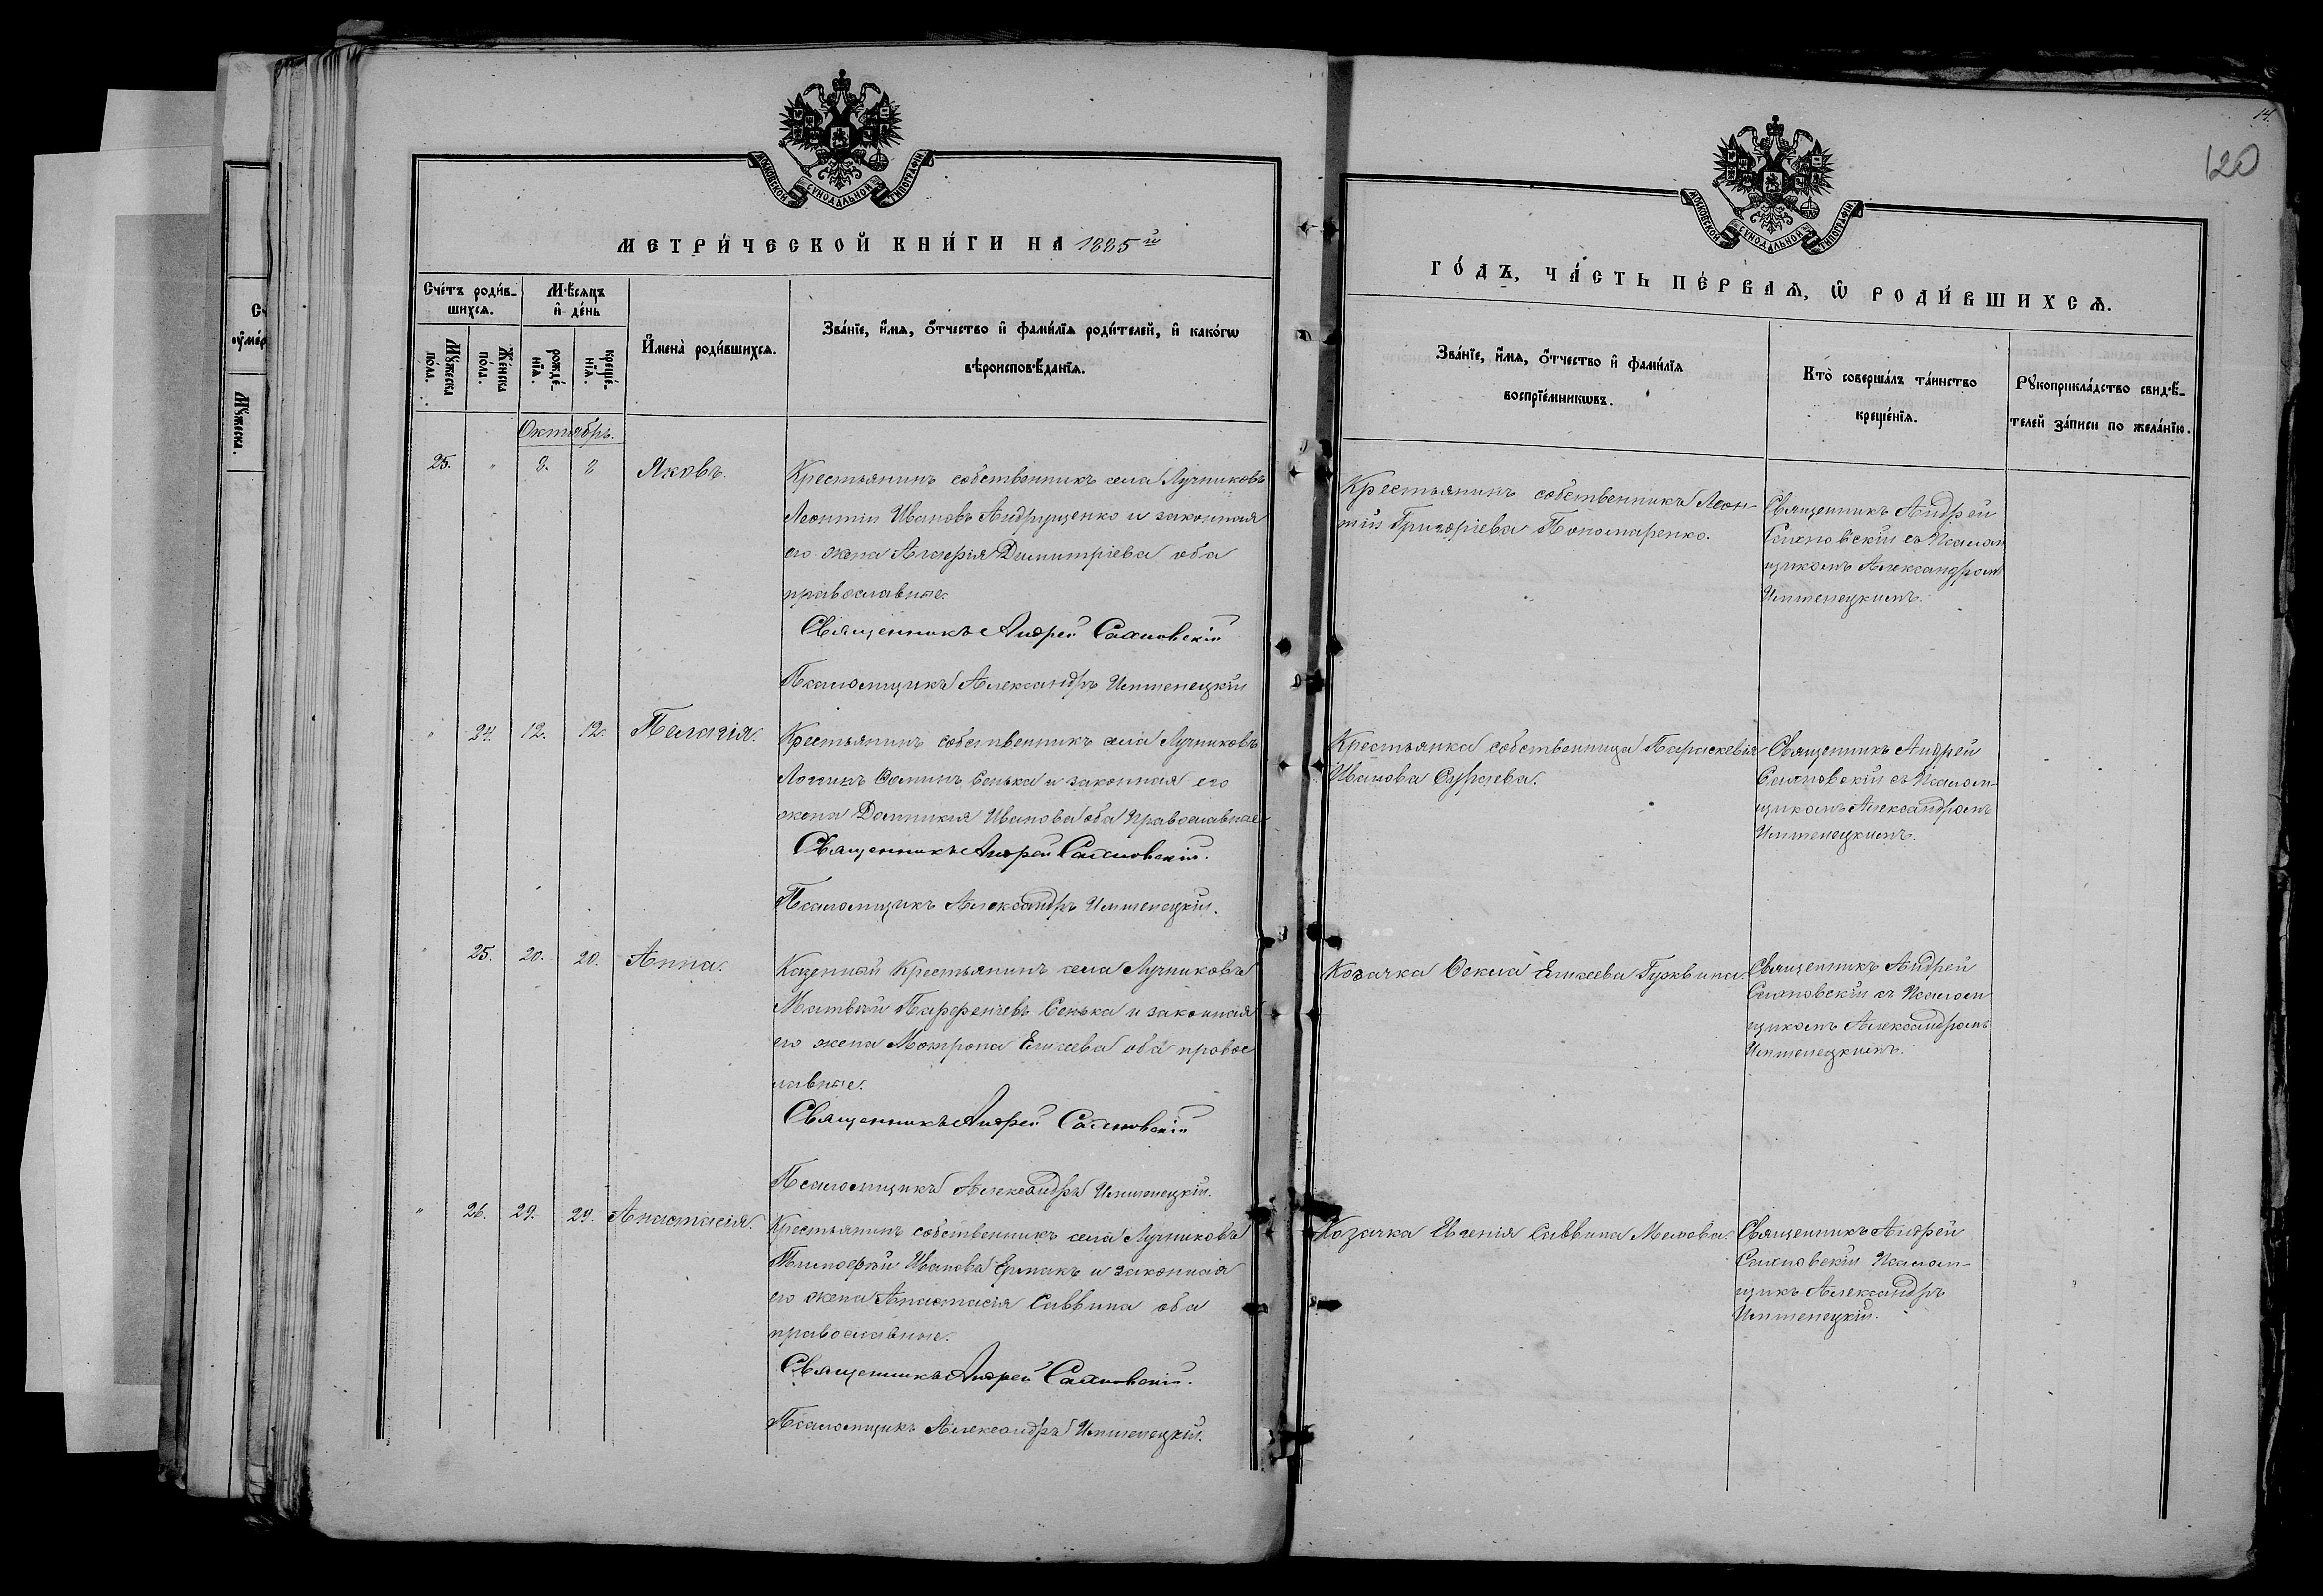 МОСКОВСКОЙ СѴНОДАЛЬНОЙ ТИПОГРАФІИ
МЕТРИ́ЧЕСКОЙ КНИ́ГИ НА 1885 й
Сче́тъ роди́в-
шихсѧ.
Мѣсѧцъ
и҆ де́нь
И҆мена̀ роди́вшихсѧ.
Зва́нїе, и҆́мѧ, ѻ҆́тчество и҆ фами́лїѧ роди́телей, и҆ како́гѡ
вѣроисповѣ́данїѧ.
Мꙋ́жеска
по́ла.
Же́нска
по́ла.
рожде́-
нїѧ.
креще́-
нїѧ.
Октябрь.
25. " 8. 8 Яковъ.
Крестьянинъ собственникъ села Лучниковъ
Леонтій Ивановъ Андрущенко и законная
его жена Агафія Димитріева оба
православные.
Священникъ Андрей Сахновскій
Псаломщикъ Александръ Имшенецкій
" 24. 12. 12. Пелагія.
Крестьянинъ собственникъ села Лучниковъ
Логинъ Ѳоминъ Сенька и законная его
жена Домникія Иванова оба православные
Священникъ Андрей Сахновскій.
Псаломщикъ Александръ Имшенецкій.
" 25. 20. 20. Анна.
Казенный Крестьянинъ села Лучниковъ
Матвѣй Парфеніевъ Сенька и законная
его жена Мотрона Елисеева оба правос
лавные.
Священникъ Андрей Сахновскій
Псаломщикъ Александръ Имшенецкій.
" 26. 29. 29. Анастасія.
Крестьянинъ собственникъ села Лучниковъ
Тимофѣй Ивановъ Ермакъ и законная
его жена Анастасія Саввина оба
православные.
Священникъ Андрей Сахновскій.
Псаломщикъ Александръ Имшенецкій.
14.
120
МОСКОВСКОЙ СѴНОДАЛЬНОЙ ТИПОГРАФІИ
ГО́ДЪ, ЧА́СТЬ ПЕ́РВАѦ, Ѽ РОДИ́ВШИХСѦ.
Зва́нїе, и҆́мѧ, ѻ҆́тчество и҆ фами́лїѧ
воспрїе́мникѡвъ.
Кто̀ соверша́лъ та́инство
креще́нїѧ.
Рꙋкоприкла́дство свидѣ́-
телей за́писи по жела́нїю.
Крестьянинъ собственникъ Леон-
тій Григоріевъ Пономаренко.
Священникъ Андрей
Сахновскій съ Псалом
щикомъ Александромъ
Имшенецкимъ.
Крестьянка собственница Параскевія
Иванова
Священникъ Андрей
Сахновскій съ Псалом-
щикомъ Александромъ
Имшенецкимъ.
Козачка Ѳекла Елисеева
Священникъ Андрей
Сахновскій съ Псалом
щикомъ Александромъ
Имшенецкимъ.
Козачка Евгенія Саввина
Священникъ Андрей
Сахновскій Псалом-
щикъ Александръ
Имшенецкій.